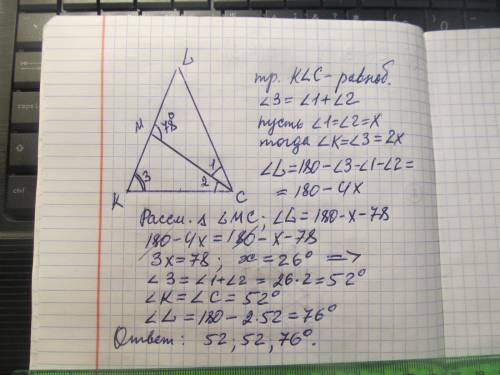 L
M 78°
1
3 2
K C
тр. KLC - равноб.
∠3=∠1+∠2
пусть ∠1=∠2=x
тогда ∠K=∠3=2x
∠L=180-∠3-∠1-∠2=
=180-4x
Рассм. Δ LMC; ∠L=180-x-78
180-4x=180-x-78
3x=78; x=26° =>
∠3=∠1+∠2=26·2=52°
∠K=∠C=52°
∠L=180-2·52=76°
Ответ: 52, 52, 76°.